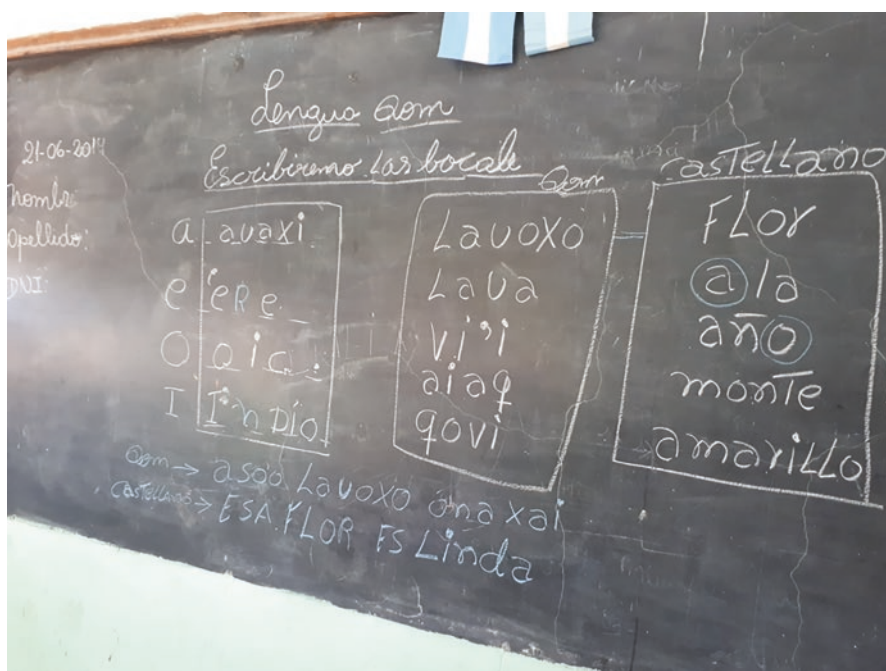 Lengua Qom
21-06-2019
Escribiremo las bocale
nombre:
Apellido:
DNI:
a avaxi
e eRe
O oic
I InDio
Qom
Lavoxo
Lava
vi'i
aiaq
qovi
casTeLLano
FLor
ala
año
monTe
amariLLo
Qom → asoo Lavoxo ana xai
castellano → ESA FLOR ES Linda